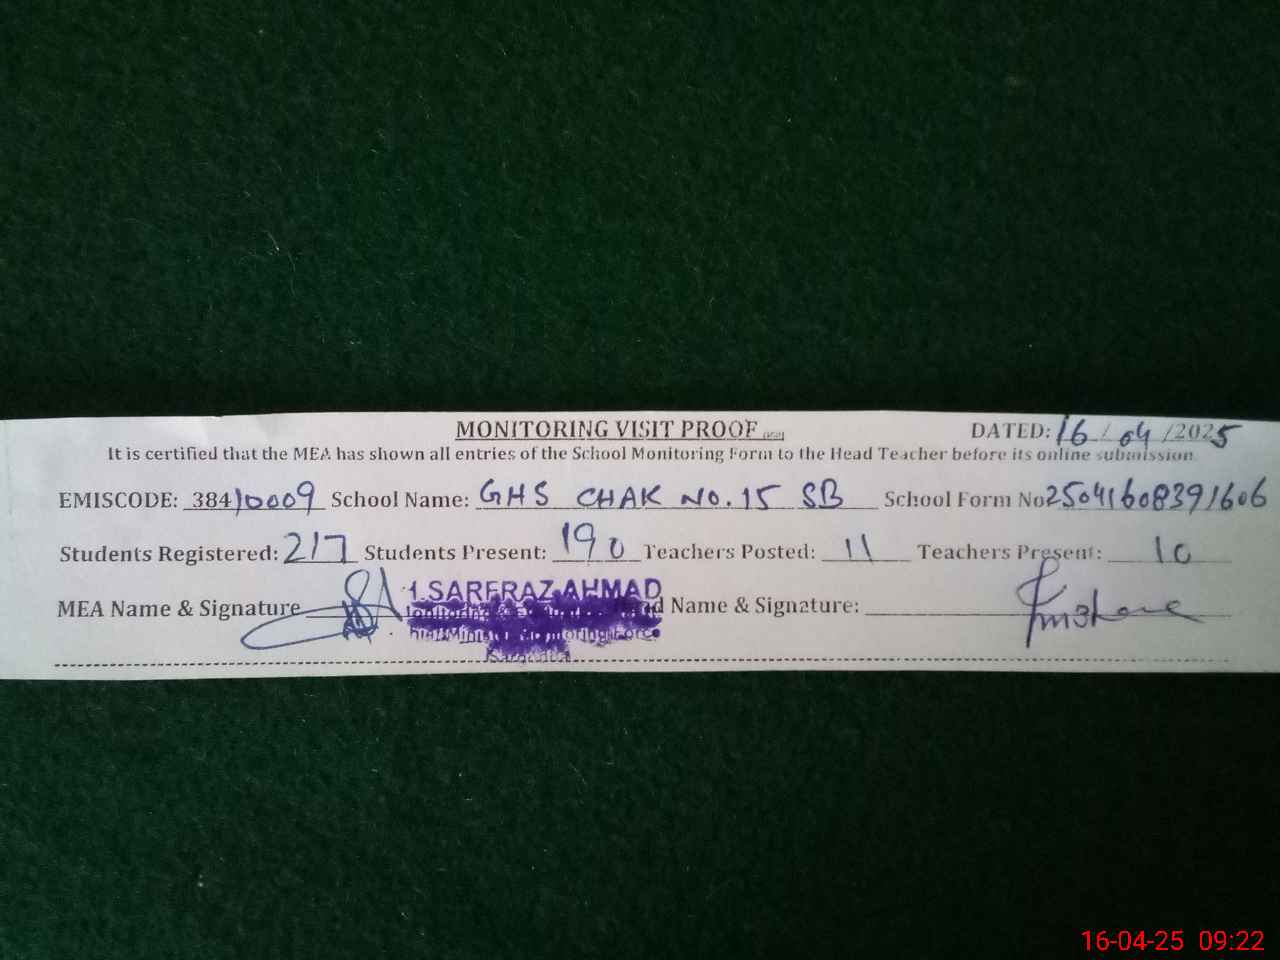 MONITORING VISIT PROOF DATED: 16/04/2025
It is certified that the MEA has shown all entries of the School Monitoring Form to the Head Teacher before its online submission
EMISCODE: 38410009 School Name: GHS CHAK NO. 15 SB School Form No 25041608391606
Students Registered: 217 Students Present: 190 Teachers Posted: 11 Teachers Present: 10
MEA Name & Signature SARFRAZ AHMAD Name & Signature:
Monitoring Force
Sargodha
16-04-25 09:22